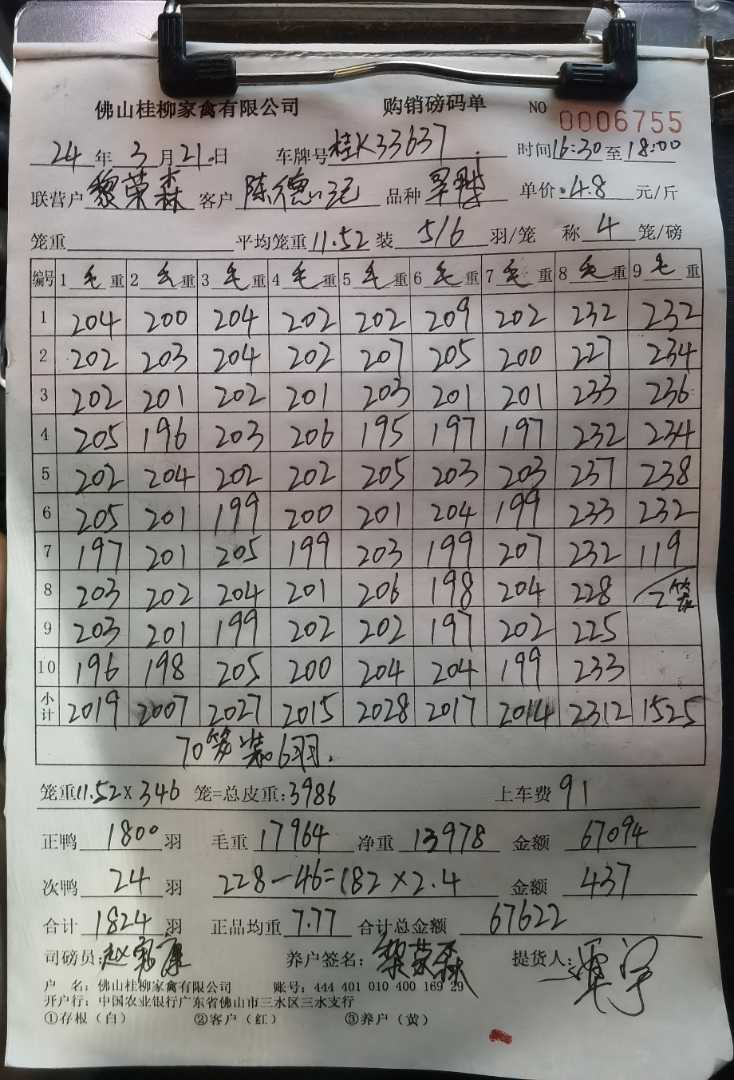 佛山桂柳家禽有限公司 购销磅码单 NO 0006755
24年3月21日 车牌号桂K33637 时间16:30至18:00
联营户 黎荣森 客户 陈德记 品种 单价 4.8 元/斤
笼重 平均笼重 11.52 装 5/6 羽/笼 称 4 笼/磅
编号 1毛重 2毛重 3毛重 4毛重 5毛重 6毛重 7毛重 8毛重 9毛重
1 204 200 204 202 202 209 202 232 232
2 202 203 204 202 207 205 200 227 234
3 202 201 202 201 203 201 201 233 236
4 205 196 203 206 195 197 197 232 234
5 202 204 202 202 205 203 203 237 238
6 205 201 199 200 201 204 199 233 232
7 197 201 205 199 203 199 207 232 119
8 203 202 204 201 206 198 204 228 2笼
9 203 201 199 202 202 197 202 225
10 196 198 205 200 204 204 199 233
小计 2019 2007 2027 2015 2028 2017 2014 2312 1525
70笼装6羽.
笼重11.52×346 笼=总皮重:3986 上车费 91
正鸭 1800 羽 毛重 17964 净重 13978 金额 67094
次鸭 24 羽 228-46=182×2.4 金额 437
合计 1824 羽 正品均重 7.77 合计总金额 67622
司磅员: 养户签名: 黎荣森 提货人:
户 名: 佛山桂柳家禽有限公司 账号: 444 401 010 400 169 29
开户行: 中国农业银行广东省佛山市三水区三水支行
①存根(白) ②客户(红) ③养户(黄)